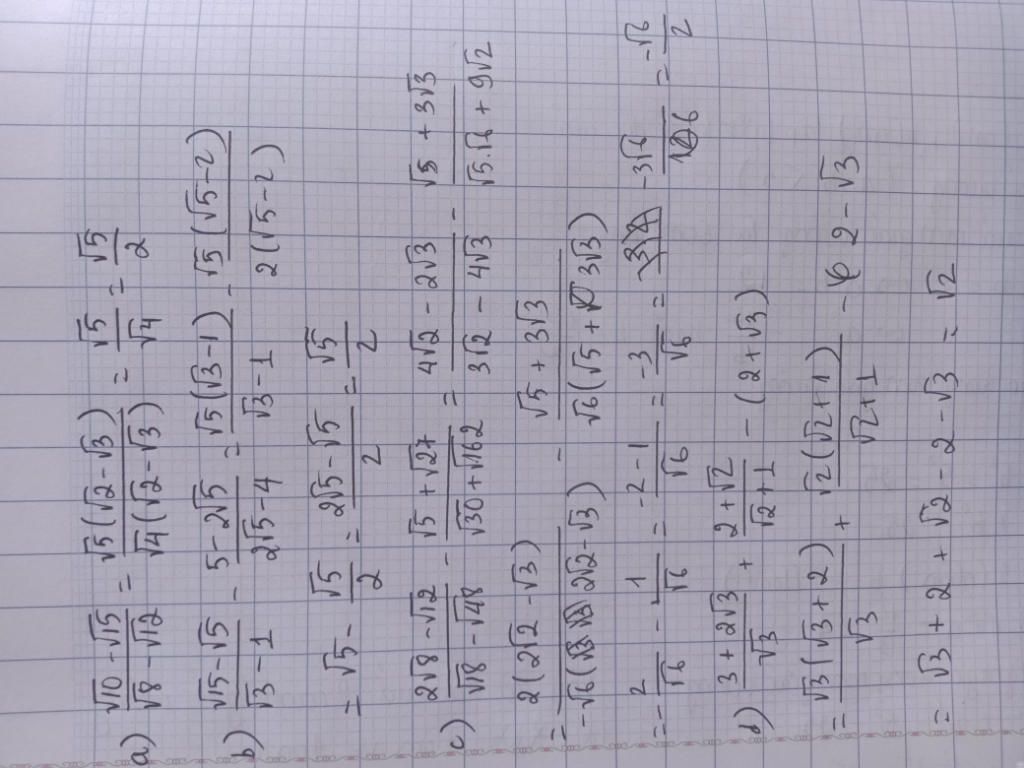 a) (√10 - √15)/(√8 - √12) = √5(√2 - √3)/√4(√2 - √3) = √5/√4 = √5/2
b) (√15 - √5)/(√3 - 1) - (5 - 2√5)/(2√5 - 4) = √5(√3 - 1)/(√3 - 1) - √5(√5 - 2)/2(√5 - 2)
= √5 - √5/2 = (2√5 - √5)/2 = √5/2
c) (2√8 - √12)/(√18 - √48) - (√5 + √27)/(√30 + √162) = (4√2 - 2√3)/(3√2 - 4√3) - (√5 + 3√3)/(√5.√6 + 9√2)
= 2(2√2 - √3)/-√6(2√2 - √3) - (√5 + 3√3)/√6(√5 + 3√3)
= -2/√6 - 1/√6 = (-2 - 1)/√6 = -3/√6 = -3√6/6 = -√6/2
d) (3 + 2√3)/√3 + (2 + √2)/(√2 + 1) - (2 + √3)
= √3(√3 + 2)/√3 + √2(√2 + 1)/(√2 + 1) - 2 - √3
= √3 + 2 + √2 - 2 - √3 = √2